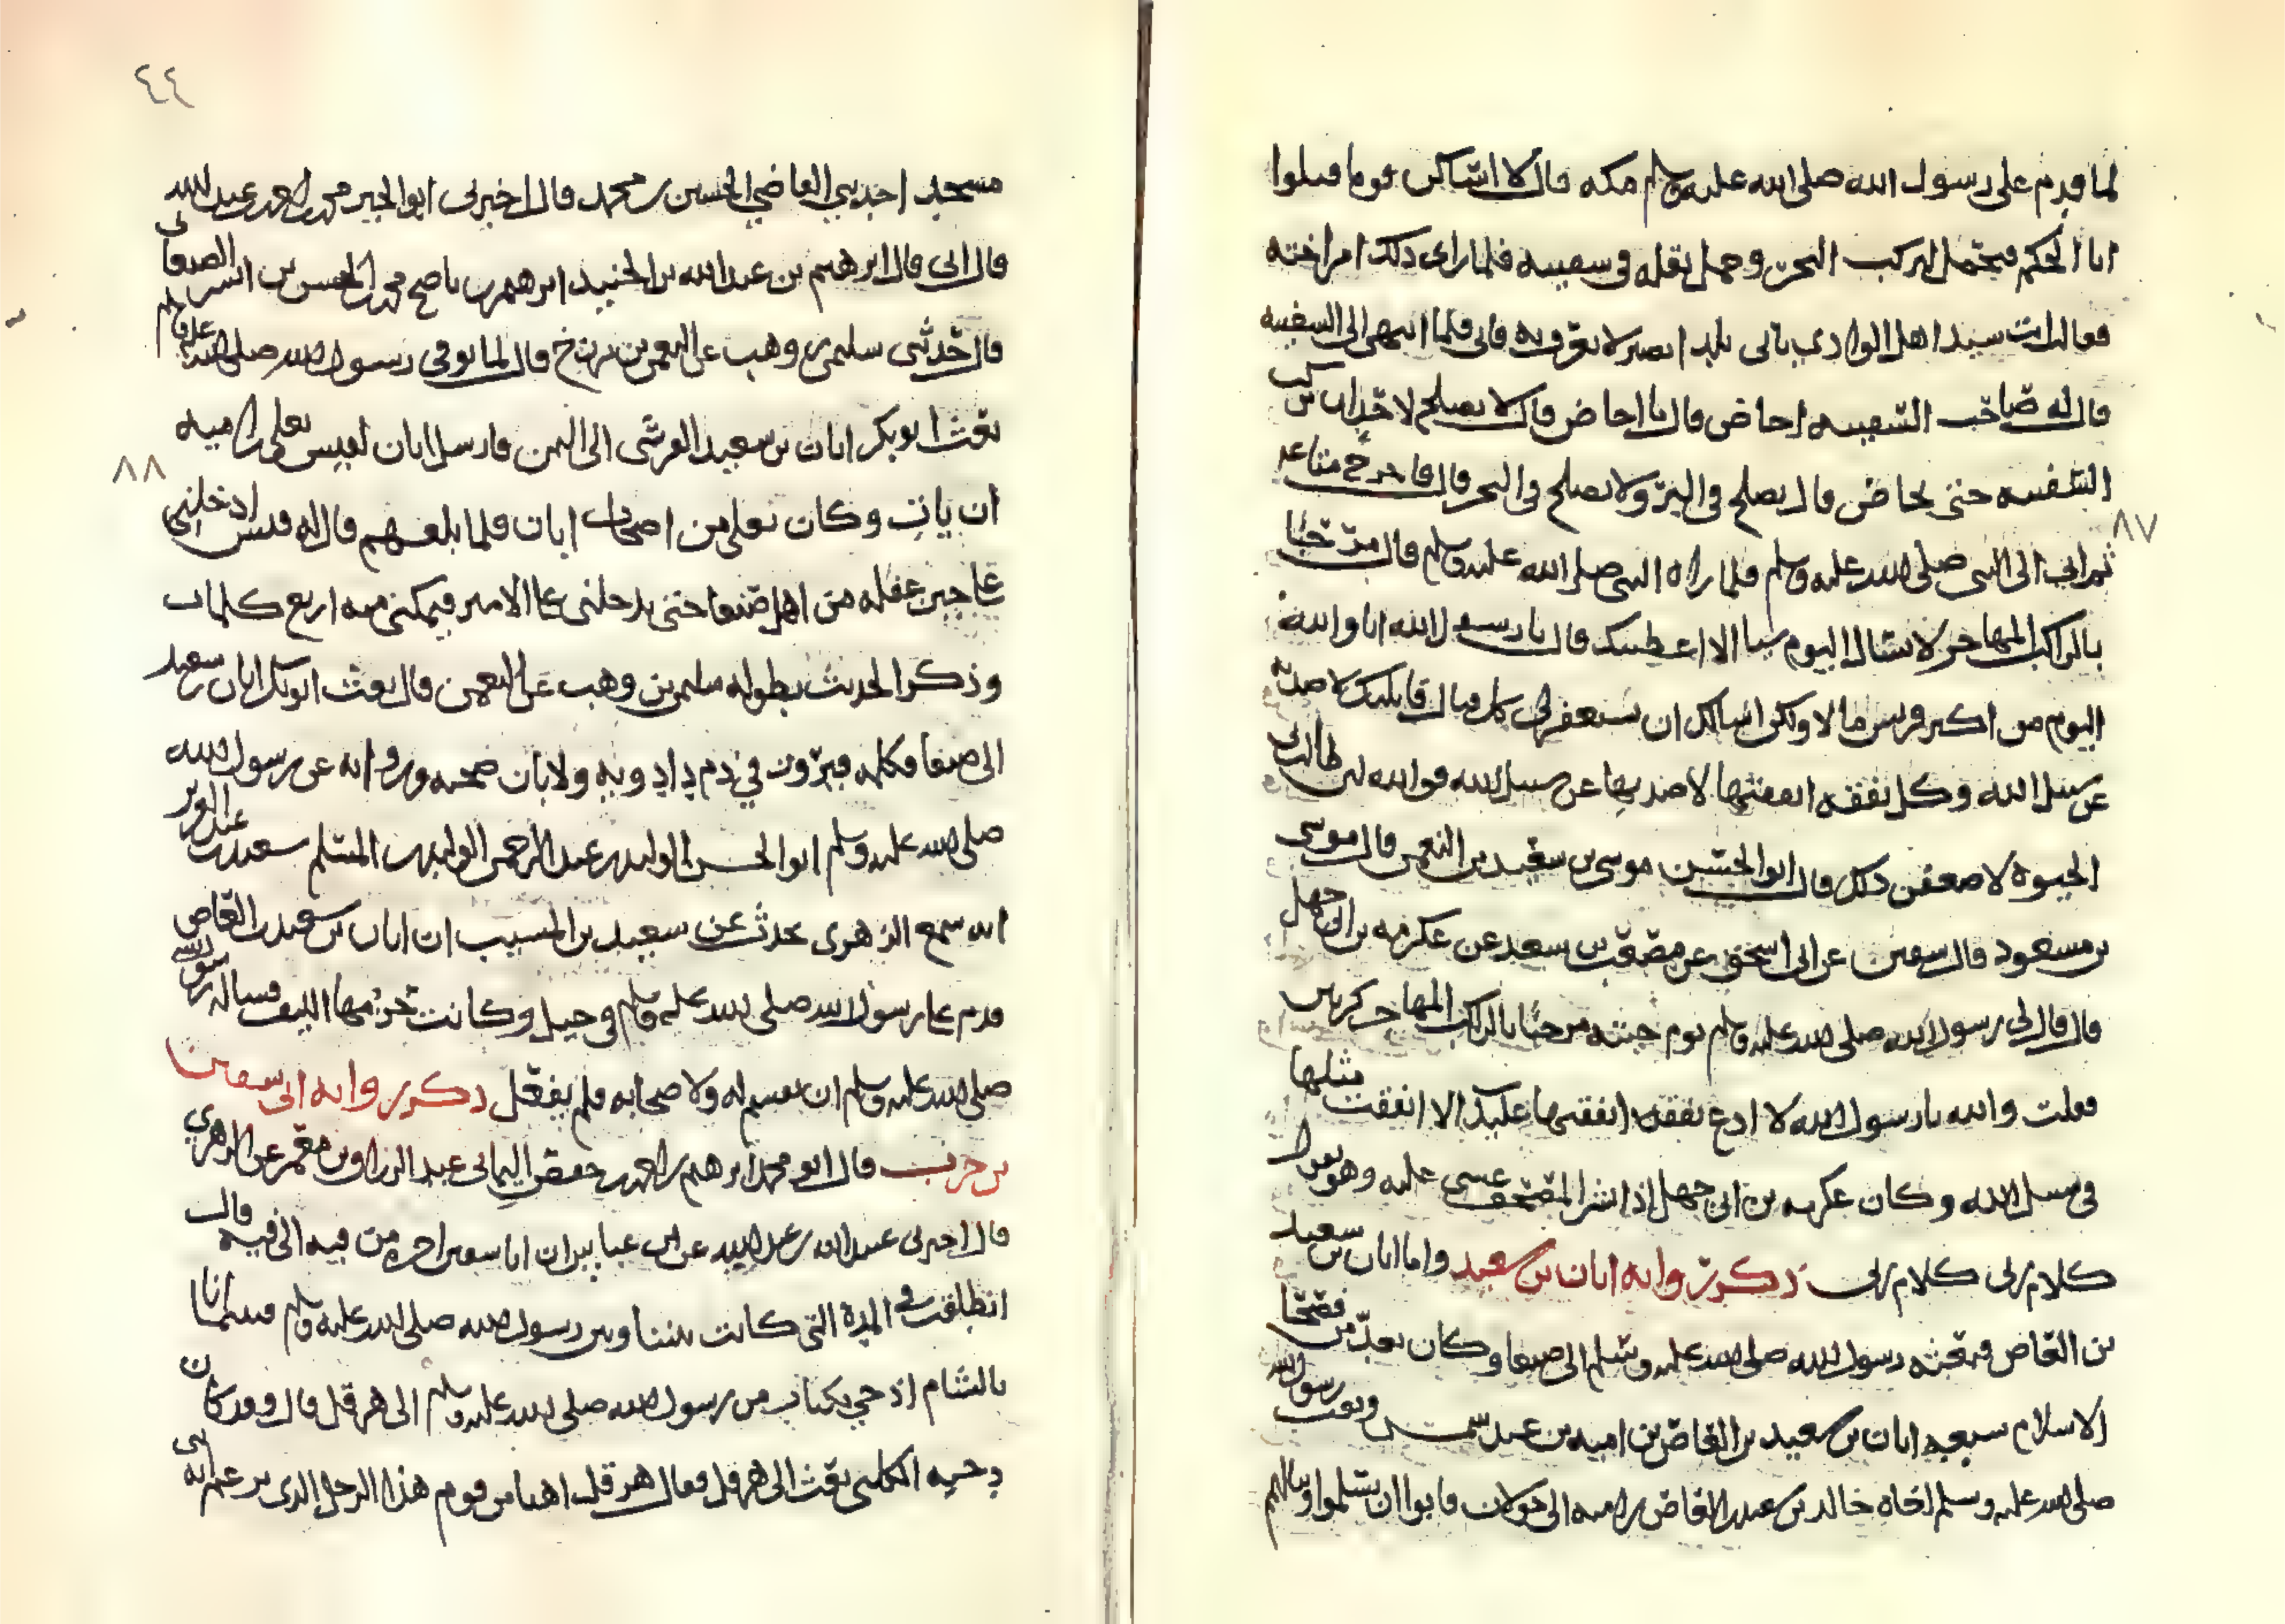 لما قدم على رسول الله صلى الله عليه وسلم مكه قال لا اساكن قوما قتلوا
ابا الحكم فتحمل ليركب البحر وحمل ثقله في سفينه فلما راى ذلك امر اخته
فقالت انت سيد اهل الوادي تاتي بلد ا تصير لا تعرف به فاتى فلما انتهى الى السفينه
قال له صاحب السفينه احاض قال ما احاض قال لا يصلح لاحد ان يركب
السفينه حتى يحاض قال يصلح في البر ولا يصلح في البحر قال فاخرج متاعه
ثم اتى الى النبي صلى الله عليه وسلم فلما راه النبي صلى الله عليه وسلم قال مرحبا
بالراكب المهاجر لا تسال اليوم شيا الا اعطيتك قال يا رسول الله انا والله
اليوم من اكثر قريش مالا ولكن اسالك ان تستغفر لي كل قتال قاتلتك لاصد به
عن سبيل الله وكل نفقه انفقتها لاصد بها عن سبيل الله فوالله لئن طالت لي
الحيوة لاضعفن ذلك قال ابو الحسن موسى بن سعيد بن النعمن قال موسى
بن مسعود قال سفين عن ابي اسحق عن مصعب بن سعد عن عكرمه بن ابي جهل
قال قال لي رسول الله صلى الله عليه وسلم يوم جيته مرحبا بالراكب المهاجر
فقلت والله يا رسول الله لا ادع نفقه انفقتها عليك الا انفقت مثلها
في سبيل الله وكان عكرمه بن ابي جهل اذا نشر المصحف غشي عليه وهو يقول
كلام ربي كلام ربي ذكر رواية ابان بن سعيد واما ابان بن سعيد
بن العاص فبعثه رسول الله صلى الله عليه وسلم الى صنعا وكان يعد من فصحا
الاسلام سبعه ابان بن سعيد بن العاص بن اميه بن عبد شمس وبعث رسول الله
صلى الله عليه وسلم اخاه خالد بن سعيد بن العاص بن اميه الى خولان فابوا ان يسلموا
٤٤
مسجد القاضي الحسين بن محمد قال اخبرني ابو الخير محمد بن احمد بن عبد الله
قال ابي قال ابرهيم بن عبد الله بن الجنيد ابرهيم بن صالح محمد بن الحسن بن الصنعاني
قال حدثني سليمن بن وهب عن النعمن بن بزرج قال لما توفي رسول الله صلى الله عليه وسلم
بعث ابو بكر ابان بن سعيد القرشي الى اليمن فارسل ابان لقيس يعلى بن اميه
ان ياتي وكان يعلى من اصحاب ابان فلما بلغهم قال له قيس ادخلني
على حين غفله من اهل صنعا حتى تدخلني على الامير فيمكني منه اربع كلمات
وذكر الحديث بطوله سليمن بن وهب عن النعمن قال بعث ابو بكر ابان بن سعيد
الى صنعا فكلمه فيروز في دم داذويه ولابان صحبه وروايه عن رسول الله
صلى الله عليه وسلم ابو الحسن الوليد عبد الرحمن الوليد بن المسلم سعيد بن عبد العزيز
انه سمع الزهري يحدث عن سعيد بن المسيب ان ابان بن سعيد بن العاص
قدم على رسول الله صلى الله عليه وسلم في خيل وكانت حزمها الليف فسال رسول الله
صلى الله عليه وسلم ان يقسم له ولاصحابه فلم يفعل ذكر رواية ابي سفين
بن حرب قال ابو محمد ابرهيم بن احمد بن حفص اليماني عبد الرزاق بن معمر عن الزهري
قال اخبرني عبيد الله بن عبد الله عن ابن عباس ان ابا سفين اخبره من فيه الى فيه قال
انطلقت في المدة التي كانت بيننا وبين رسول الله صلى الله عليه وسلم فبينما انا
بالشام اذ جي بكتاب من رسول الله صلى الله عليه وسلم الى هرقل قال وقد كان
دحيه الكلبي بعث الى هرقل فقال هرقل اهنا من قوم هذا الرجل الذي يزعم انه نبي
٨٧
٨٨